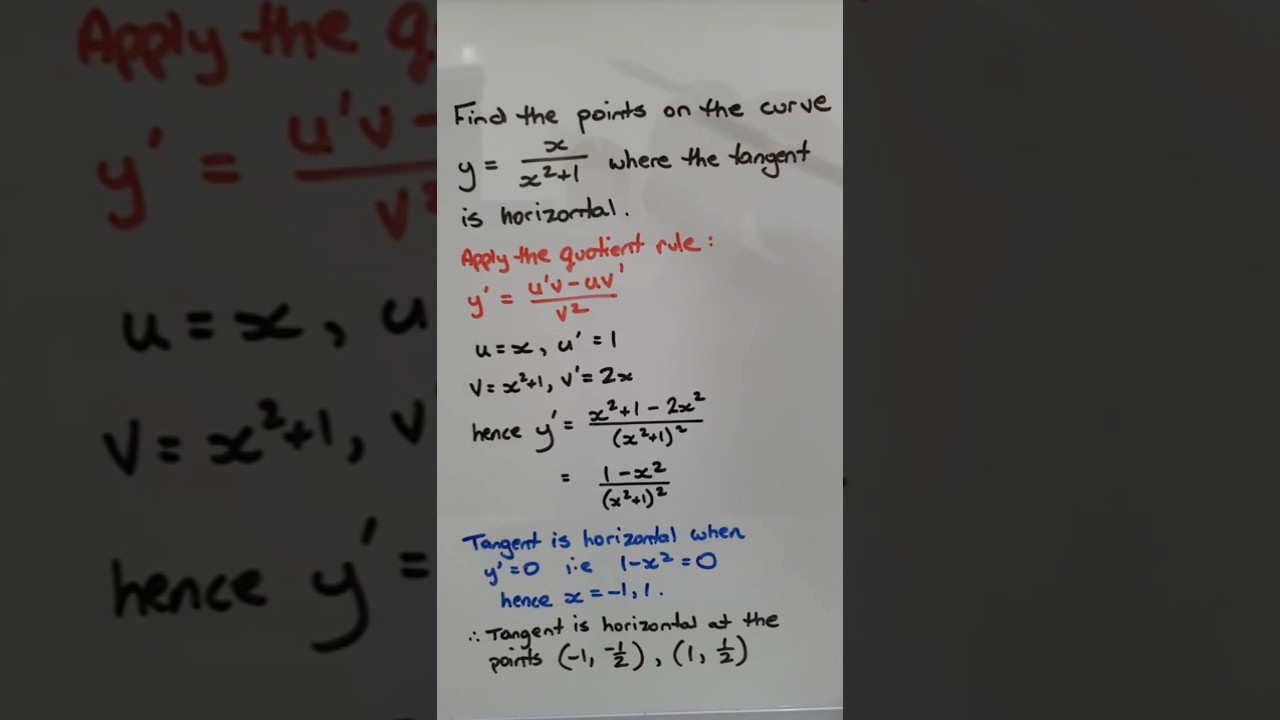 Find the points on the curve
y = x/(x²+1) where the tangent
is horizontal.
Apply the quotient rule:
y' = (u'v - uv')/v²
u = x, u' = 1
v = x²+1, v' = 2x
hence y' = (x²+1 - 2x²)/(x²+1)²
= (1 - x²)/(x²+1)²
Tangent is horizontal when
y' = 0 i.e 1-x² = 0
hence x = -1, 1.
∴ Tangent is horizontal at the
points (-1, -1/2), (1, 1/2)